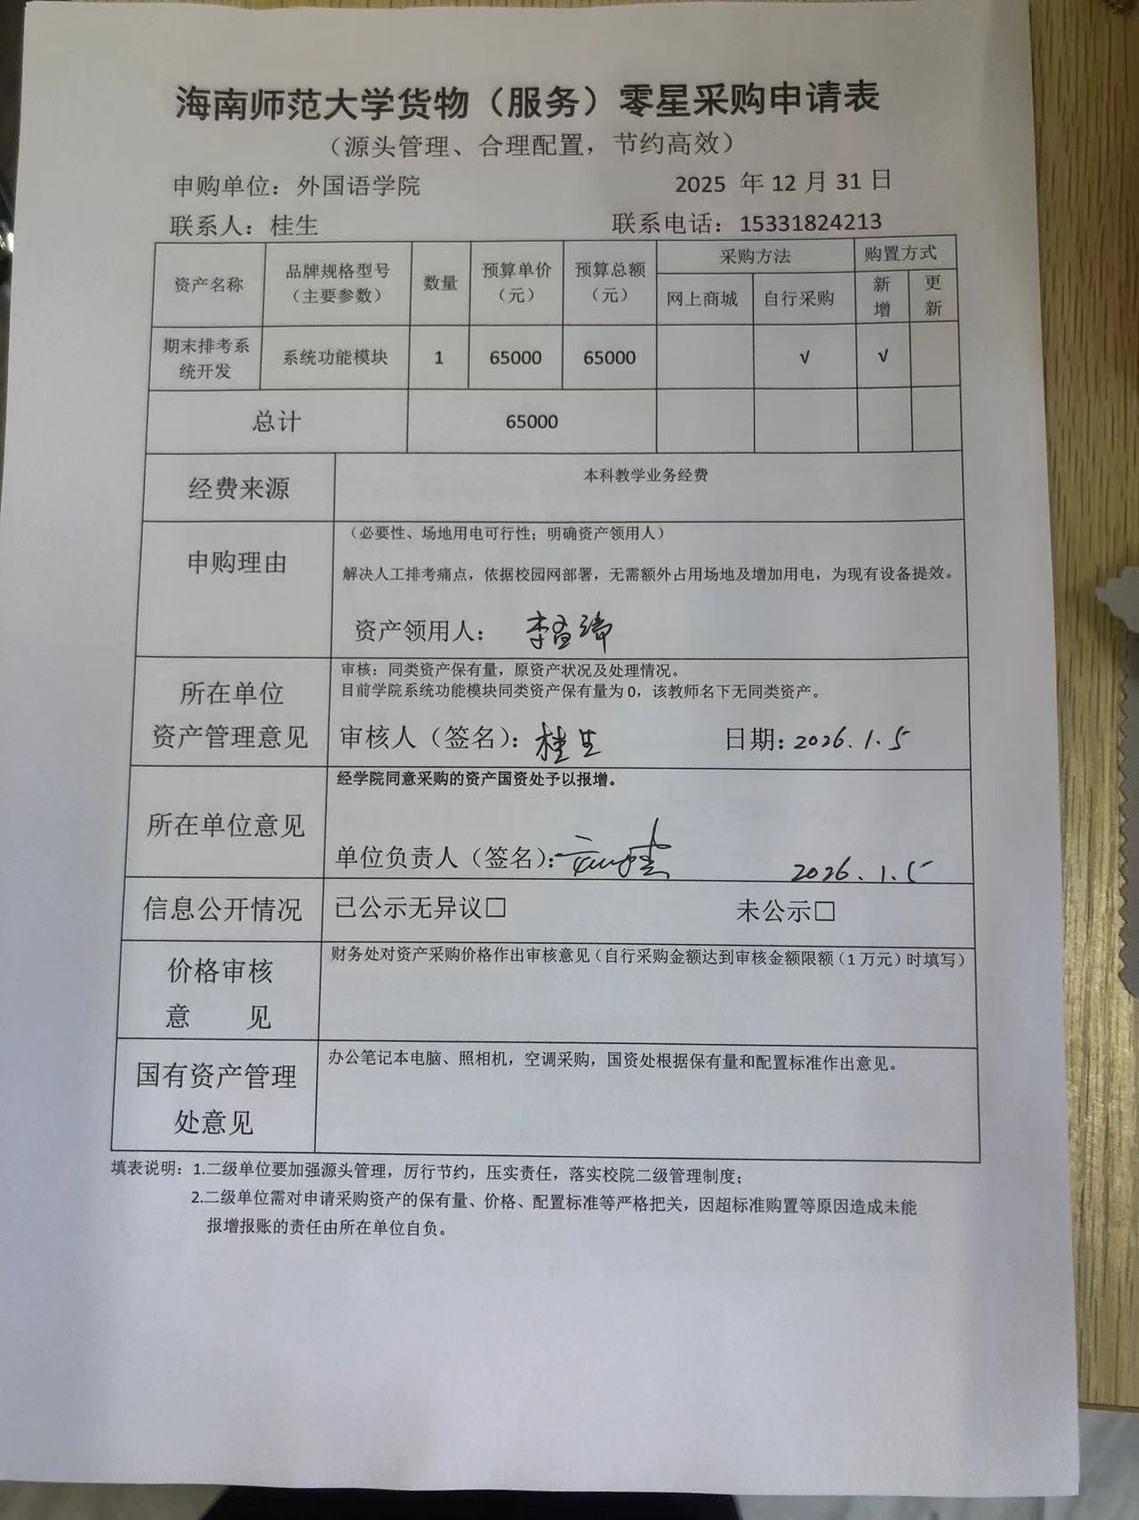 海南师范大学货物（服务）零星采购申请表
（源头管理、合理配置，节约高效）
申购单位：外国语学院 2025 年 12 月 31 日
联系人：桂生 联系电话：15331824213
资产名称 品牌规格型号（主要参数） 数量 预算单价（元） 预算总额（元） 采购方法 购置方式
网上商城 自行采购 新增 更新
期末排考系统开发 系统功能模块 1 65000 65000 √ √
总计 65000
经费来源 本科教学业务经费
申购理由 （必要性、场地用电可行性；明确资产领用人）
解决人工排考痛点，依据校园网部署，无需额外占用场地及增加用电，为现有设备提效。
资产领用人：
所在单位资产管理意见 审核：同类资产保有量，原资产状况及处理情况。
目前学院系统功能模块同类资产保有量为 0，该教师名下无同类资产。
审核人（签名）：桂生 日期：2026.1.5
所在单位意见 经学院同意采购的资产国资处予以报增。
单位负责人（签名）： 2026.1.5
信息公开情况 已公示无异议□ 未公示□
价格审核意见 财务处对资产采购价格作出审核意见（自行采购金额达到审核金额限额（1 万元）时填写）
国有资产管理处意见 办公笔记本电脑、照相机，空调采购，国资处根据保有量和配置标准作出意见。
填表说明：1.二级单位要加强源头管理，厉行节约，压实责任，落实校院二级管理制度；
2.二级单位需对申请采购资产的保有量、价格、配置标准等严格把关，因超标准购置等原因造成未能
报增报账的责任由所在单位自负。